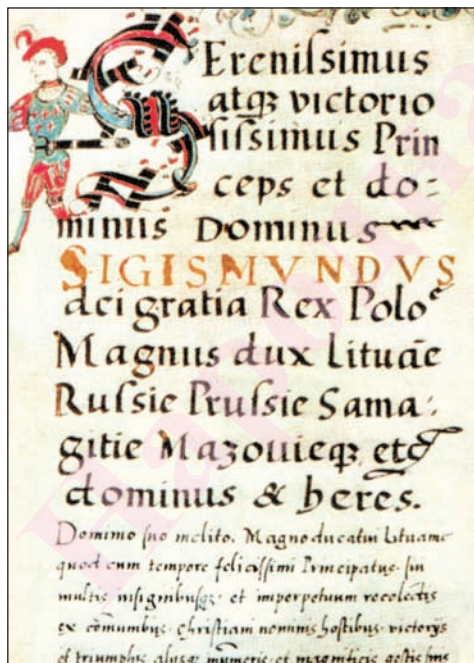 SErenissimus
atqꝫ victorio
sissimus Prin
ceps et do-
minus Dominus
SIGISMVNDVS
dei gratia Rex Poloᵉ
Magnus dux Lituāe
Russie Prussie Sama-
gitie Mazouieqꝫ etc
dominus & heres.
Domimo suo inclito. Magno ducatui Lituanie
quod cum tempore felicissimi Principatus sui
multis insignibusqꝫ et imperpetuum recolectis
ex cōmunibus Christiani nominis hostibus victorijs
et triumphis alijsqꝫ et magnificis gestis